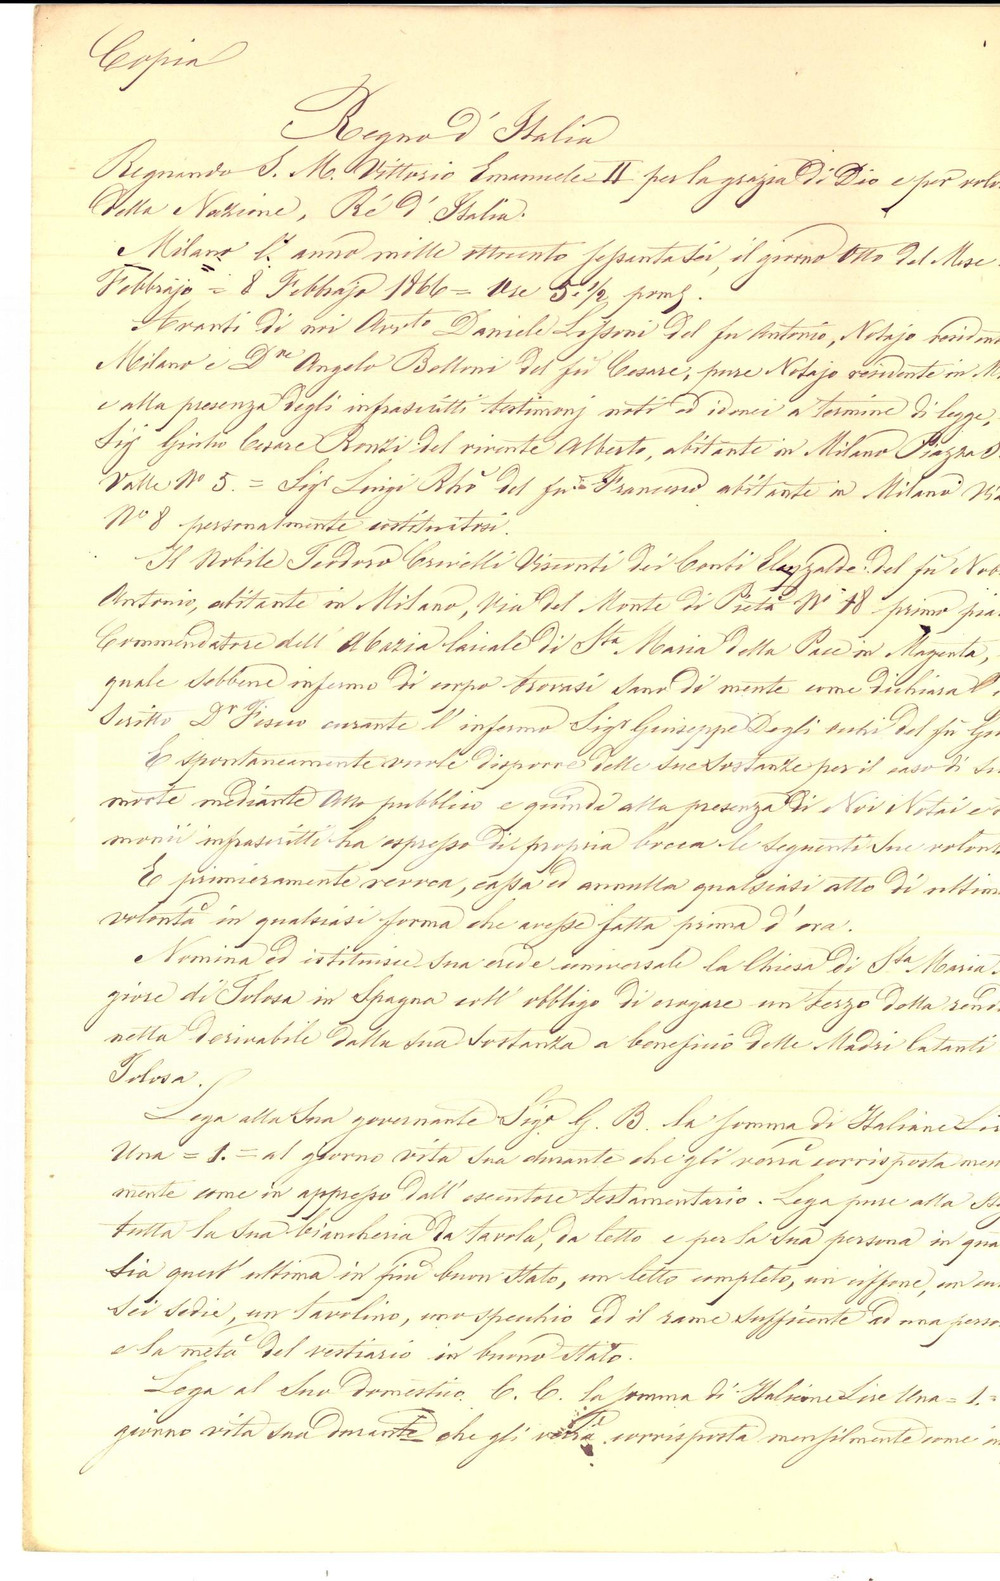 Copia
Regno d' Italia
Regnando S. M. Vittorio Emanuele II per la grazia di Dio e per volo
della Nazione, Ré d' Italia.
Milano l' anno mille ottocento sessanta sei, il giorno Otto del Mese
Febbrajo = 8 Febbrajo 1866 = Ore 5 1/2 pom.
Avanti di noi Daniele del fu Antonio, Notajo resident
Milano e Dre Angelo Belloni del fu Cesare, pure Notajo residente in M
e alla presenza degli infrascritti testimonj noti ed idonei a termine di legge,
Sigr Giulio Cesare Ronzi del vivente Alberto, abitante in Milano Piazza
Valle No 5. = Sigr Luigi Rhò del fu Francesco abitante in Milano Via
No 8 personalmente costituitosi.
Il Nobile Teodoro Crivelli Visconti dei Conti del fu Nob
Antonio, abitante in Milano, Via del Monte di Pietà No 18 primo pia
Commendatore dell' Abazia laicale di Sta Maria della Pace in Magenta,
quale sebbene infermo di corpo trovasi sano di mente come dichiara l'
scritto Dr Fisico curante l' infermo Sigr Giuseppe Degli Occhi del fu
E spontaneamente vuole disporre delle sue sostanze per il caso di su
morte mediante Atto pubblico e quindi alla presenza di Noi Notai e
monii infrascritti ha espresso di propria bocca le seguenti sue volont
E primieramente revoca, cassa ed annulla qualsiasi atto di ultima
volontà in qualsiasi forma che avesse fatta prima d' ora.
Nomina ed istituisce sua erede universale la Chiesa di Sta Maria
giore di Tolosa in Spagna coll' obbligo di erogare un terzo della rend
netta derivabile dalla sua sostanza a beneficio delle Madri latanti
Tolosa.
Lega alla sua governante Sigra G. B. la somma di Italiane Lir
Una = 1. = al giorno vita sua durante che gli verrà corrisposta men
mente come in appresso dall' esecutore testamentario. Lega pure alla
tutta la sua biancheria da tavola, da letto e per la sua persona in qua
sia quest' ultima in più buon stato, un letto completo, un ciffone, un
sei sedie, un tavolino, uno specchio ed il rame sufficente ad una perso
e la metà del vestiario in buono stato.
Lega al suo domestico C. C. la somma di Italiane Lire Una = 1. =
giorno vita sua durante che gli verrà corrisposta mensilmente come